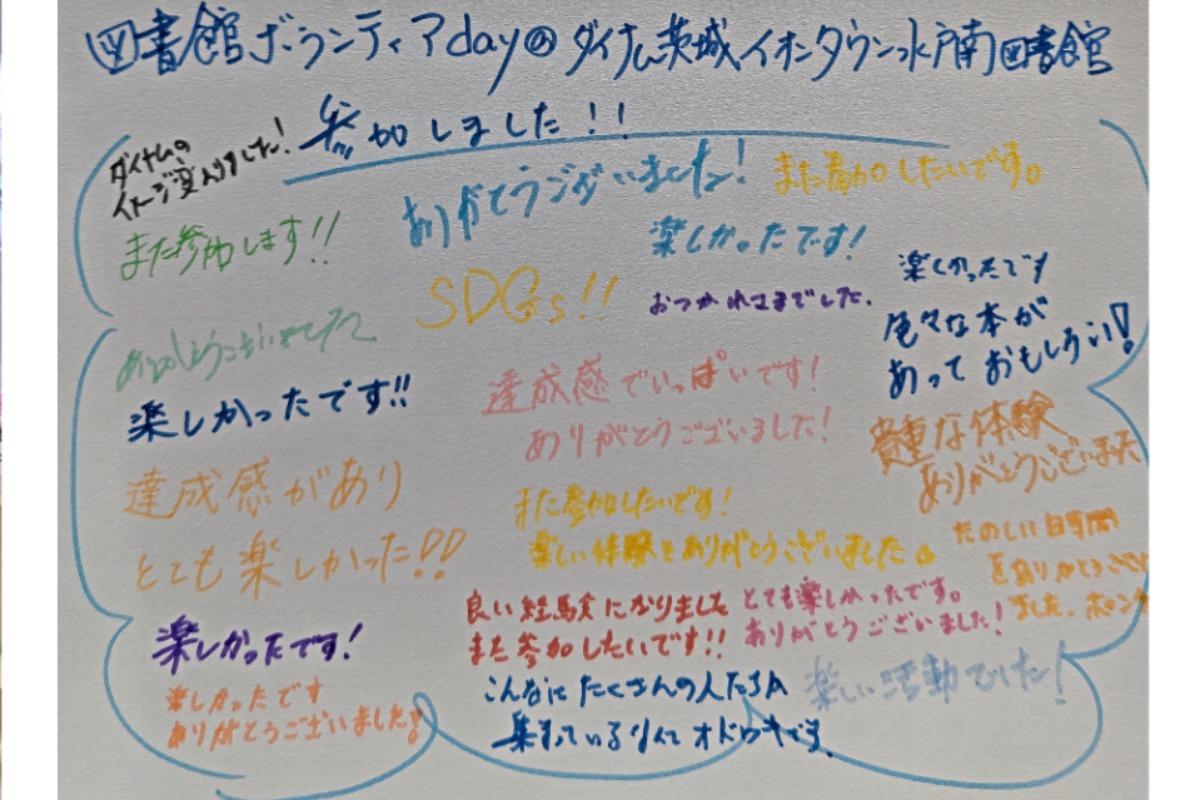 図書館ボランティアday@ダイナム茨城イオンタウン水戸南図書館
参加しました!!
ダイナムの
イメージ変わりました!
ありがとうございました!
また参加したいです。
また参加します!!
楽しかったです!
SDGs!!
おつかれさまでした.
楽しかったです
色々な本が
あって おもしろい!
ありがとうございました
楽しかったです!!
達成感でいっぱいです!
ありがとうございました!
貴重な体験
ありがとうございました
達成感があり
とても楽しかった!!
また参加したいです!
楽しい体験をありがとうございました。
たのしい時間
をありがとうござい
ました。
良い経験になりました
また参加したいです!!
とても楽しかったです。
ありがとうございました!
楽しかったです!
楽しかったです
ありがとうございました!
こんなに たくさんの人たちが
集まっているなんて オドロキです.
楽しい活動でした!